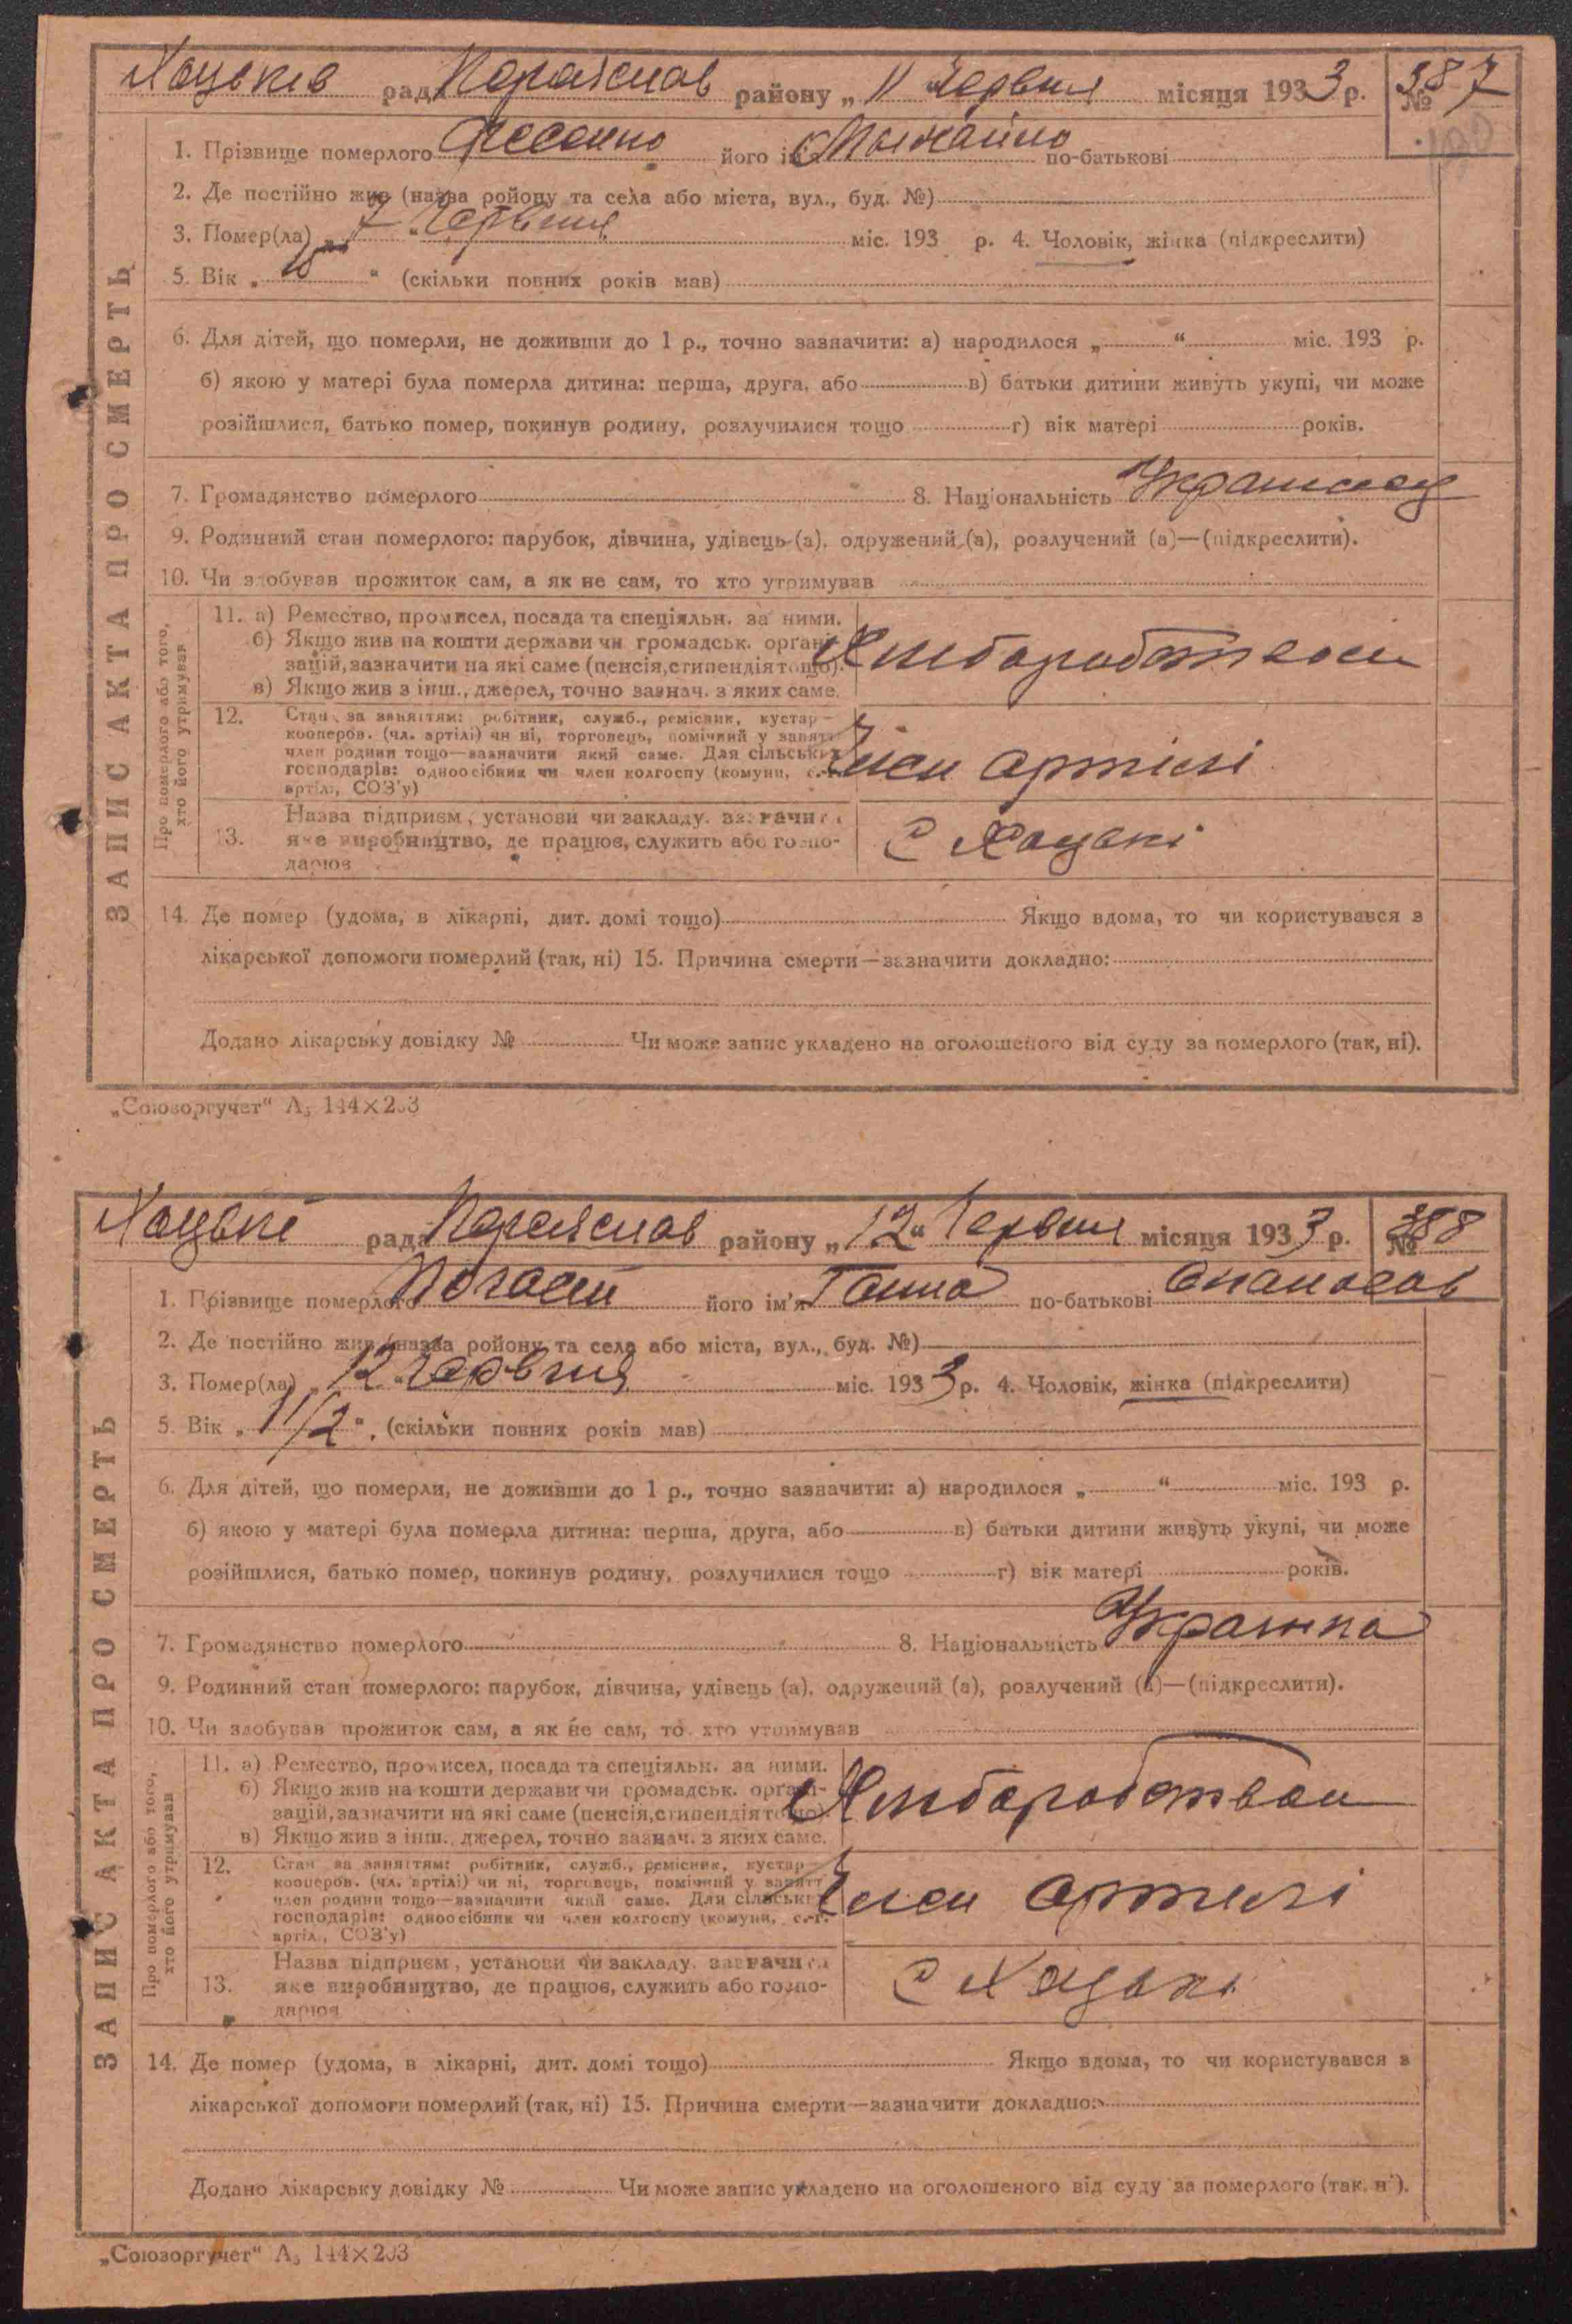 Хоцьків рада Переяслав району „ 11 Червня місяця 1933 р. № 387
1. Прізвище померлого його ім'я Михайло по-батькові
2. Де постійно жив (назва ройону та села або міста, вул., буд. №)
3. Помер(ла) „ 7 " Червня міс. 193 р. 4. Чоловік, жінка (підкреслити)
5. Вік „ " (скільки повних років мав)
6. Для дітей, що померли, не доживши до 1 р., точно зазначити: а) народилося „ “ міс. 193 р.
б) якою у матері була померла дитина: перша, друга, або в) батьки дитини живуть укупі, чи може
розійшлися, батько помер, покинув родину, розлучилися тощо г) вік матері років.
7. Громадянство померлого 8. Національність Украинец
9. Родинний стан померлого: парубок, дівчина, удівець (а), одружений (а), розлучений (а)—(підкреслити).
10. Чи здобував прожиток сам, а як не сам, то хто утримував
ЗАПИС АКТА ПРО СМЕРТЬ
Про померлого або того, хто його утримував
11. а) Ремество, промисел, посада та спеціяльн. за ними.
б) Якщо жив на кошти держави чи громадськ. органі-
зацій, зазначити на які саме (пенсія, стипендія тощо).
в) Якщо жив з інш., джерел, точно зазнач. з яких саме.
Хлібаробством
12. Стан за заняттям: робітник, служб., ремісник, кустар —
кооперов. (чл. артілі) чи ні, торговець, помічний у занятт
член родини тощо—зазначити який саме. Для сільських
господарів: одноосібник чи член колгоспу (комуни, с.-г.
артіл., СОЗ'у)
Член артілі
13. Назва підприєм., установи чи закладу. зазначити
яке виробництво, де працює, служить або госпо-
дарює
С Хоцьки
14. Де помер (удома, в лікарні, дит. домі тощо) Якщо вдома, то чи користувався з
лікарської допомоги померлий (так, ні) 15. Причина смерти—зазначити докладно:
Додано лікарську довідку № Чи може запис укладено на оголошеного від суду за померлого (так, ні).
„Союзоргучет“ А₅ 144×203
Хоцькі рада Переяслав району „ 12 “ Червня місяця 1933 р. № 388
1. Прізвище померлого його ім'я Ганна по-батькові
2. Де постійно жив (назва ройону та села або міста, вул., буд. №)
3. Помер(ла) „ 12 " Червня міс. 1933 р. 4. Чоловік, жінка (підкреслити)
5. Вік „ 1 1/2 " (скільки повних років мав)
6. Для дітей, що померли, не доживши до 1 р., точно зазначити: а) народилося „ “ міс. 193 р.
б) якою у матері була померла дитина: перша, друга, або в) батьки дитини живуть укупі, чи може
розійшлися, батько помер, покинув родину, розлучилися тощо г) вік матері років.
7. Громадянство померлого 8. Національність Украинка
9. Родинний стан померлого: парубок, дівчина, удівець (а), одружений (а), розлучений (а)—(підкреслити).
10. Чи здобував прожиток сам, а як не сам, то хто утримував
ЗАПИС АКТА ПРО СМЕРТЬ
Про померлого або того, хто його утримував
11. а) Ремество, промисел, посада та спеціяльн. за ними.
б) Якщо жив на кошти держави чи громадськ. органі-
зацій, зазначити на які саме (пенсія, стипендія тощо)
в) Якщо жив з інш., джерел, точно зазнач. з яких саме.
Хлібаробством
12. Стан за заняттям: робітник, служб., ремісник, кустар —
кооперов. (чл. артілі) чи ні, торговець, помічний у занятт
член родини тощо—зазначити який саме. Для сільських
господарів: одноосібник чи член колгоспу (комуни, с.-г.
артіл., СОЗ'у)
Член артилі
13. Назва підприєм., установи чи закладу. зазначити
яке виробництво, де працює, служить або госпо-
дарює
С Хоцьки
14. Де помер (удома, в лікарні, дит. домі тощо) Якщо вдома, то чи користувався з
лікарської допомоги померлий (так, ні) 15. Причина смерти—зазначити докладно:
Додано лікарську довідку № Чи може запис укладено на оголошеного від суду за померлого (так, ні).
„Союзоргучет“ А₅ 144×203